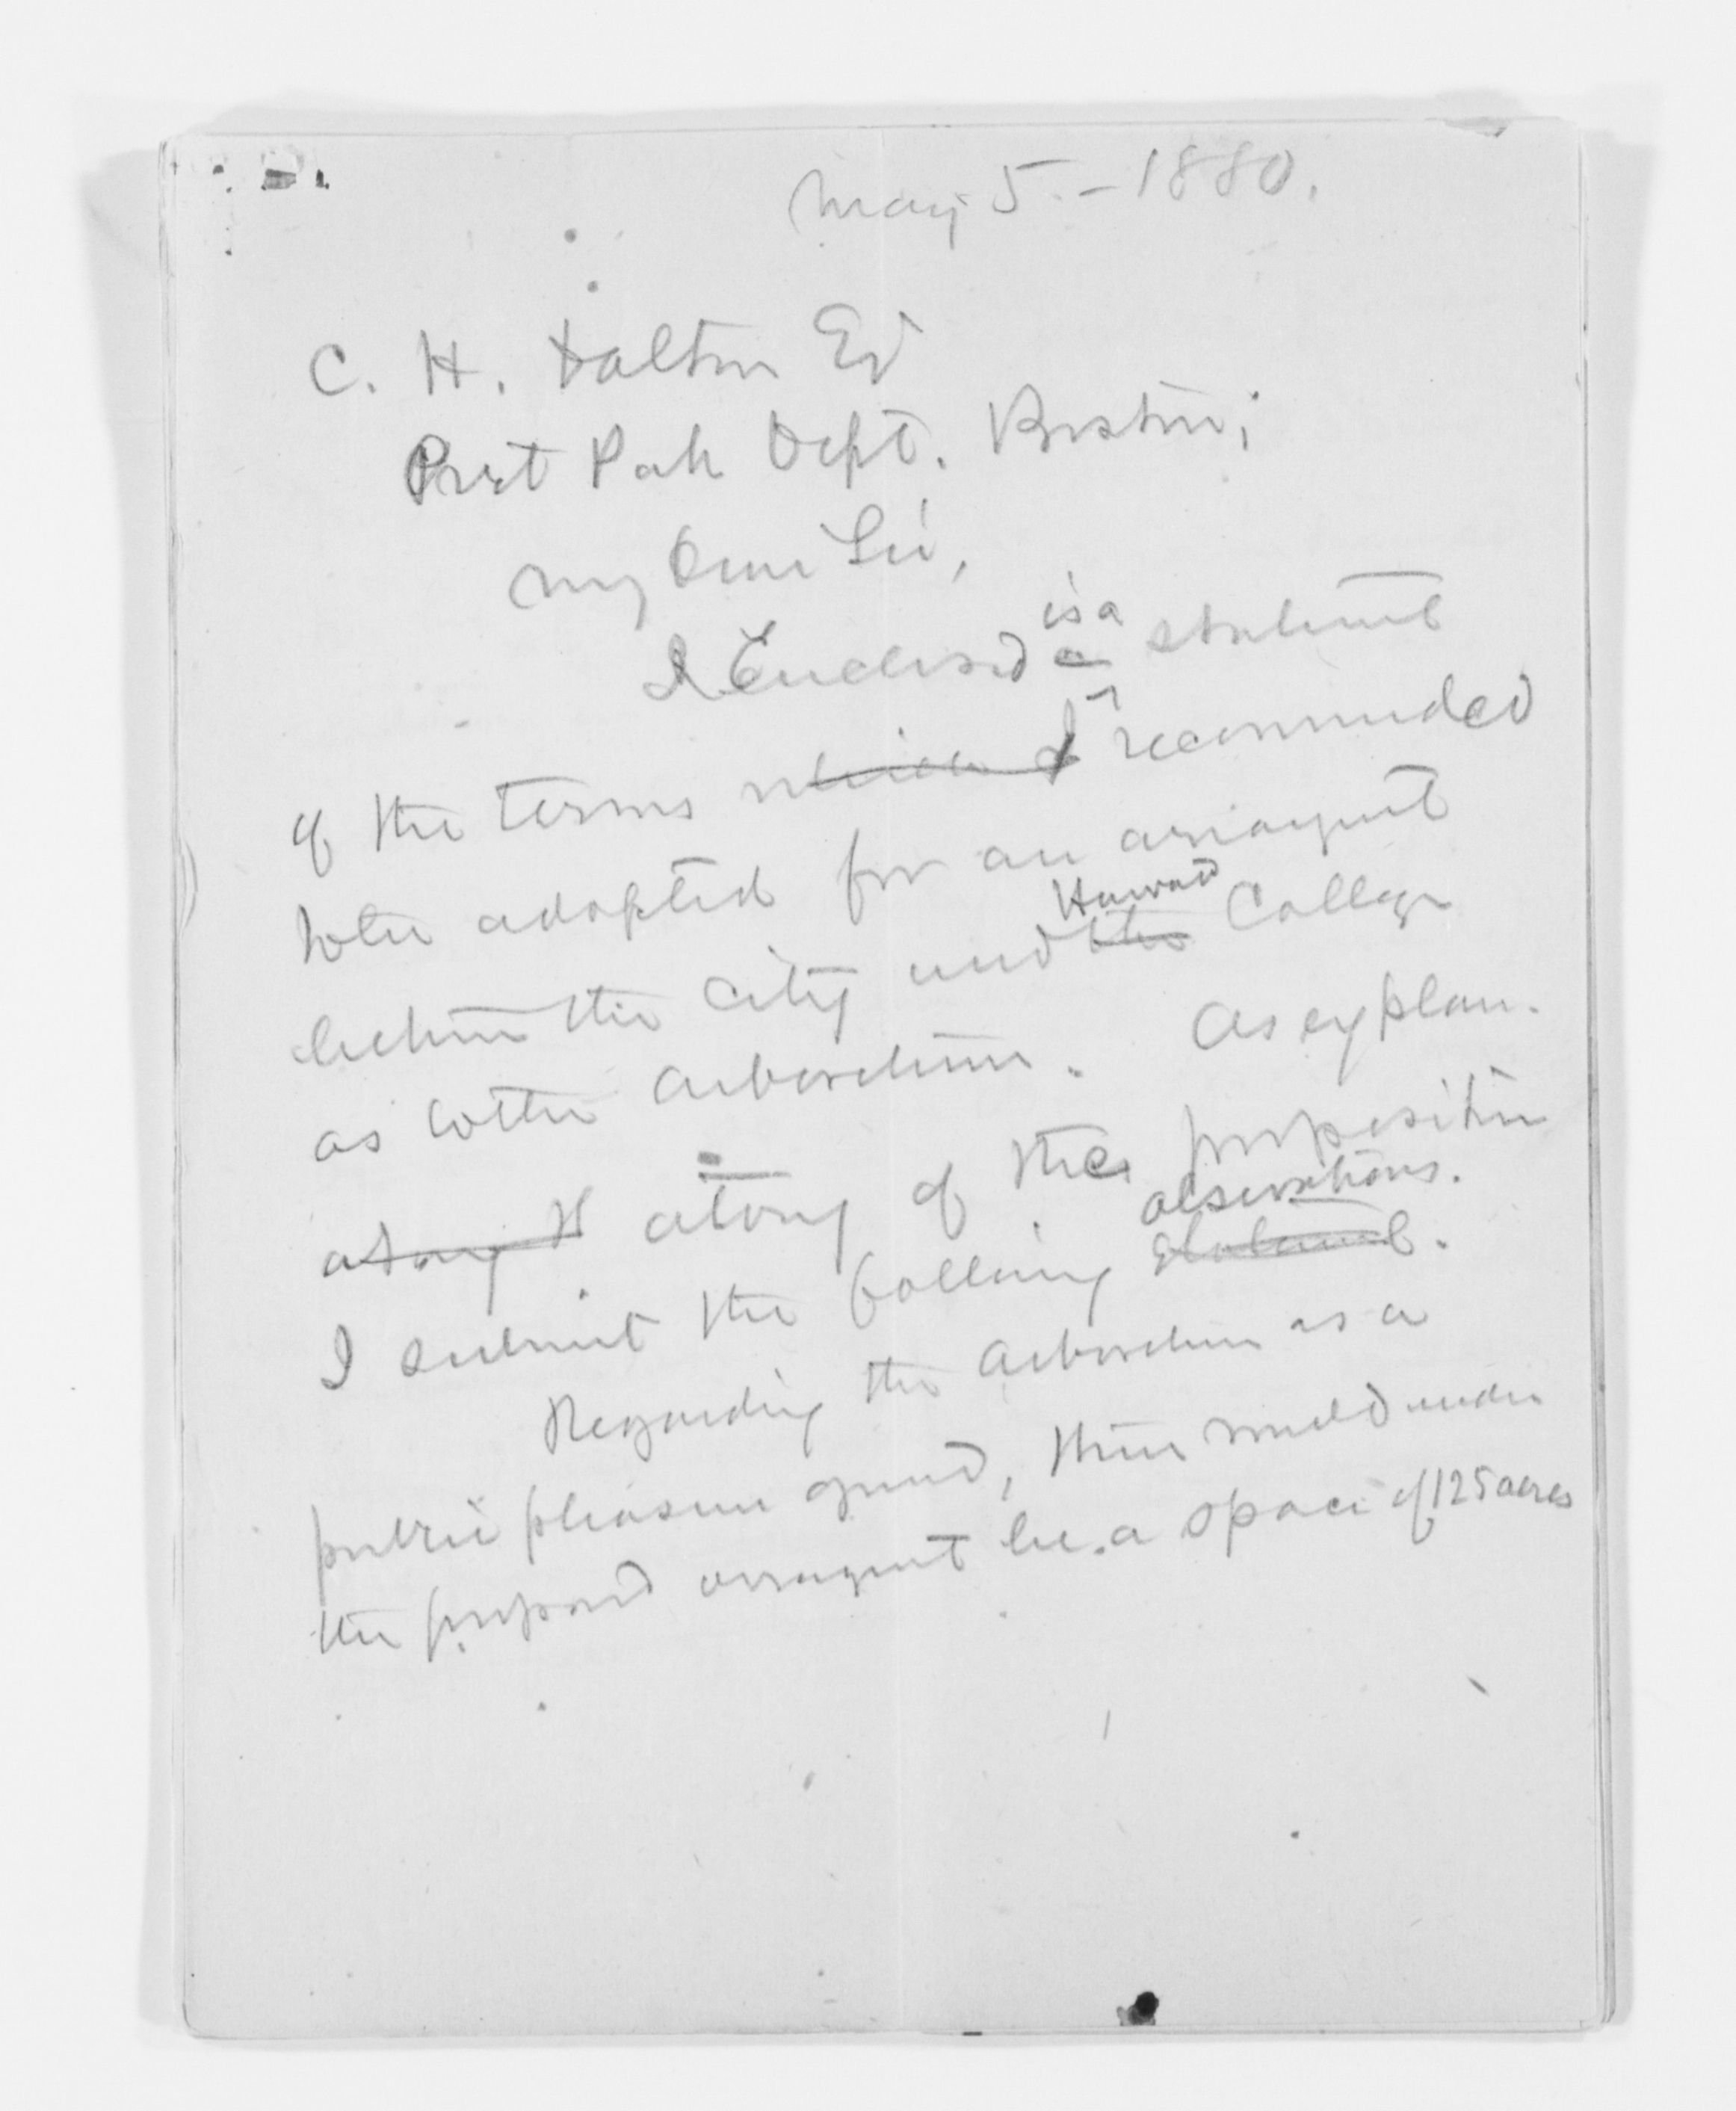 May 5. - 1880.
C. H. Dalton Esq
Prest Park Dept. Boston;
My Dear Sir,
I Enclosed is a
a statement
of the terms which I recommended
to be adopted for an arrangement
Harvard
between the city and the College
as to the arboretum. As explan-
atory of atory of the proposition
observations.
I submit the following statement.
Regarding the arboretum as a
public pleasure ground, there would under
the proposed arrangement be a space of 125 acres